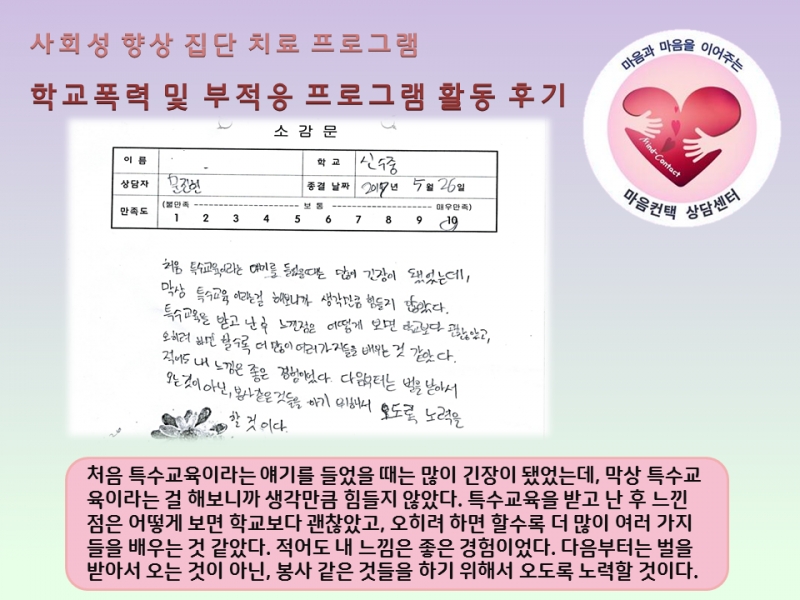 사회성 향상 집단 치료 프로그램
학교폭력 및 부적응 프로그램 활동 후기
마음과 마음을 이어주는
Mind-Contact
마음컨택 상담센터
소 감 문
이 름 학 교 신수중
상담자 종결 날짜 2017년 5월 26일
만족도 (불만족 보 통 매우만족)
1 2 3 4 5 6 7 8 9 10
처음 특수교육이라는 얘기를 들었을때는 많이 긴장이 됐었는데,
막상 특수교육 이라는걸 해보니까 생각만큼 힘들지 않았다.
특수교육을 받고 난 후 느낀점은 어떻게 보면 학교보다 괜찮았고,
오히려 하면 할수록 더 많이 여러가지들을 배우는 것 같았다.
적어도 내 느낌은 좋은 경험이었다. 다음부터는 벌을 받아서
오는것이 아닌, 봉사같은것들을 하기 위해서 오도록 노력을
할 것이다.
처음 특수교육이라는 얘기를 들었을 때는 많이 긴장이 됐었는데, 막상 특수교
육이라는 걸 해보니까 생각만큼 힘들지 않았다. 특수교육을 받고 난 후 느낀
점은 어떻게 보면 학교보다 괜찮았고, 오히려 하면 할수록 더 많이 여러 가지
들을 배우는 것 같았다. 적어도 내 느낌은 좋은 경험이었다. 다음부터는 벌을
받아서 오는 것이 아닌, 봉사 같은 것들을 하기 위해서 오도록 노력할 것이다.